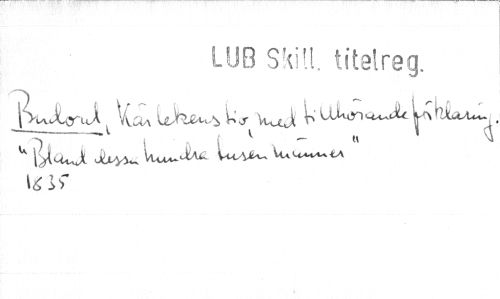 LUB Skill. titelreg.
Budord, Kärlekens tio, med tillhörande förklaring.
"Bland dessa hundra tusen männer"
1835